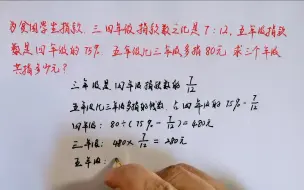 为贫困学生捐款,三四年级捐款数之比是7:12,五年级捐款
数是四年级的75%,五年级比三年级多捐80元,求三个年级
共捐多少元?
三年级是四年级捐款数的7/12
五年级比三年级多捐的钱数占四年级的75%-7/12
四年级:80÷(75%-7/12)=480元
三年级:480×7/12=280元
五年级: